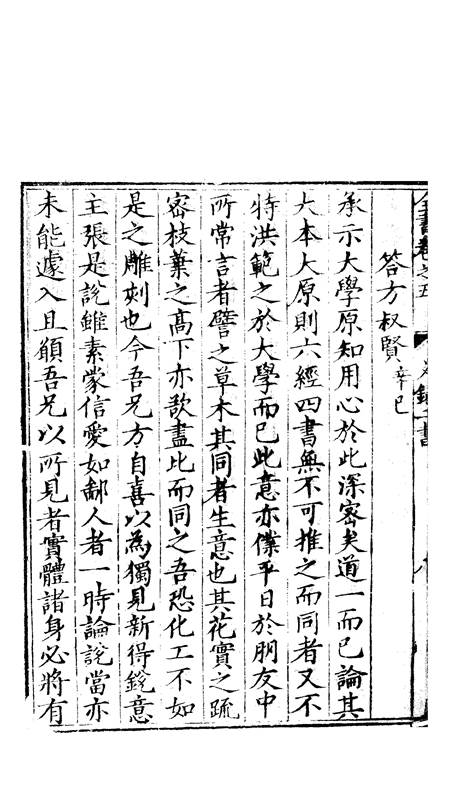 全書卷之五
答方叔賢辛巳
承示大學原知用心於此深密矣道一而已論其
大本大原則六經四書無不可推之而同者又不
特洪範之於大學而已此意亦僕平日於朋友中
所常言者譬之草木其同者生意也其花實之疏
密枝葉之高下亦欲盡比而同之吾恐化工不如
是之雕刻也今吾兄方自喜以為獨見新得銳意
主張是說雖素蒙信愛如鄙人者一時論說當亦
未能遽入且願吾兄以所見者實體諸身必將有